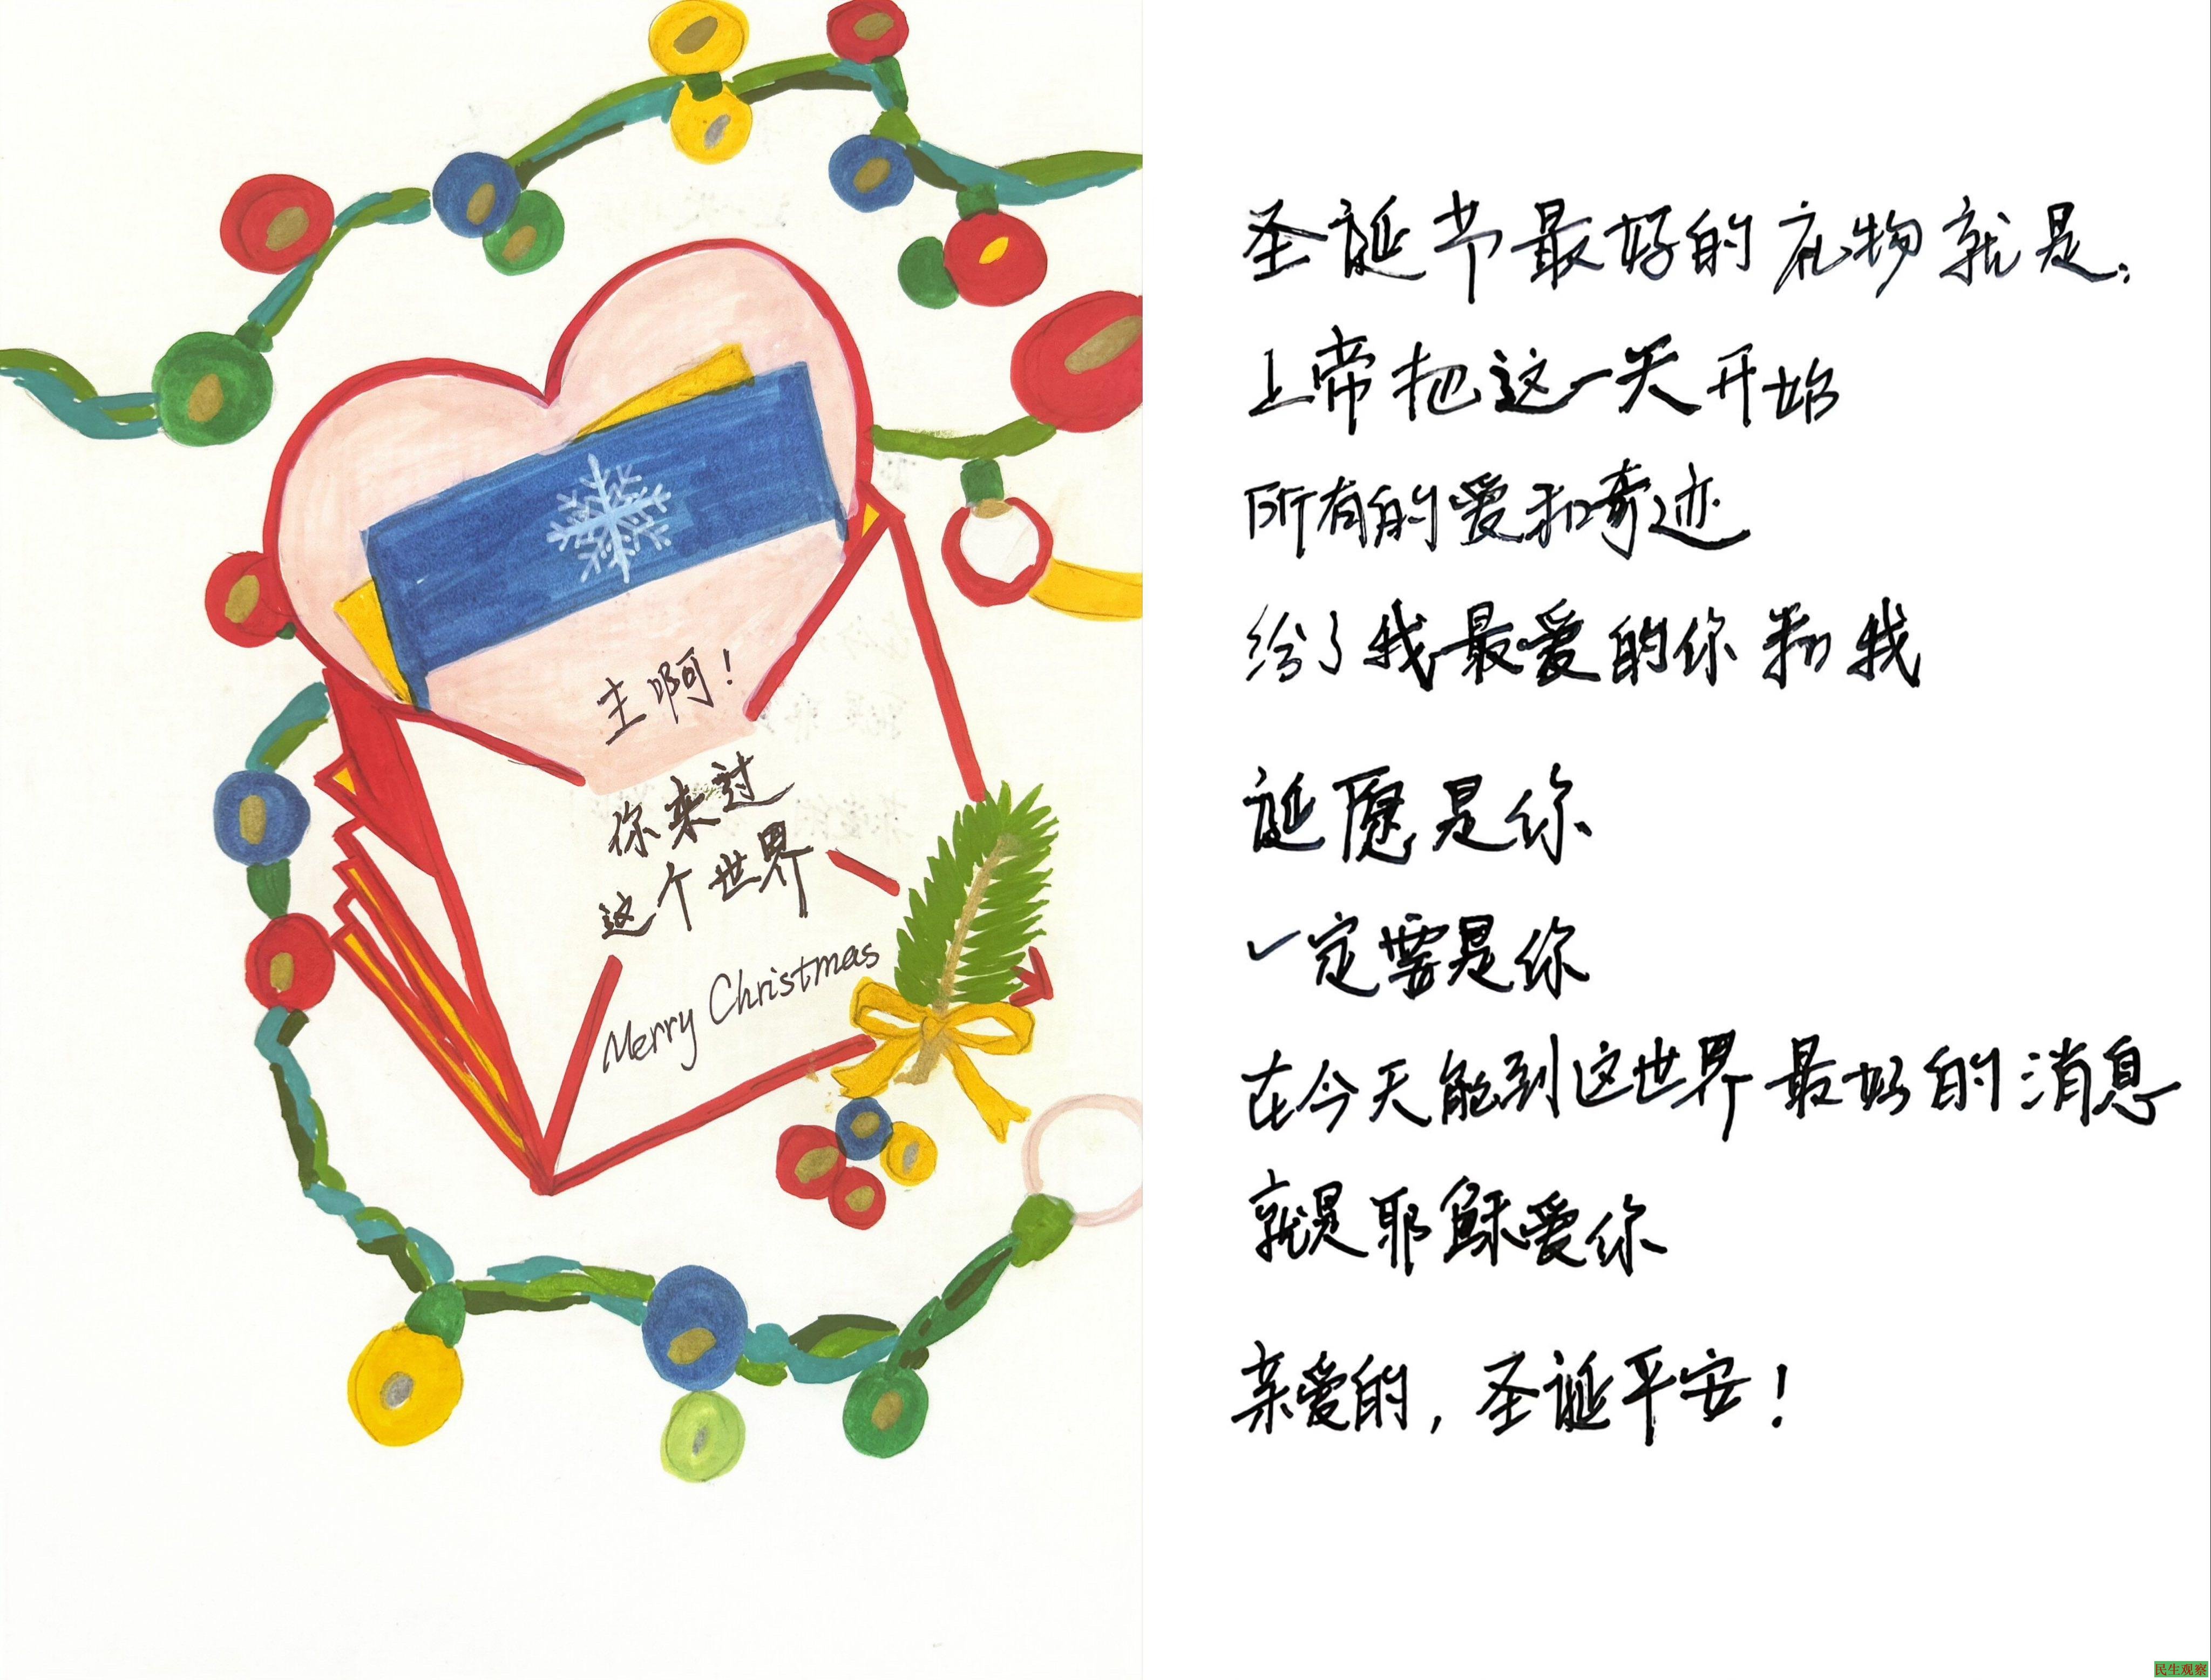 主啊！
你来过
这个世界
Merry Christmas
圣诞节最好的礼物就是：
上帝把这一天开始
所有的爱和奇迹
给了我最爱的你和我
诞愿是你
一定要是你
在今天能到这世界最好的消息
就是耶穌爱你
亲爱的，圣诞平安！
民生观察